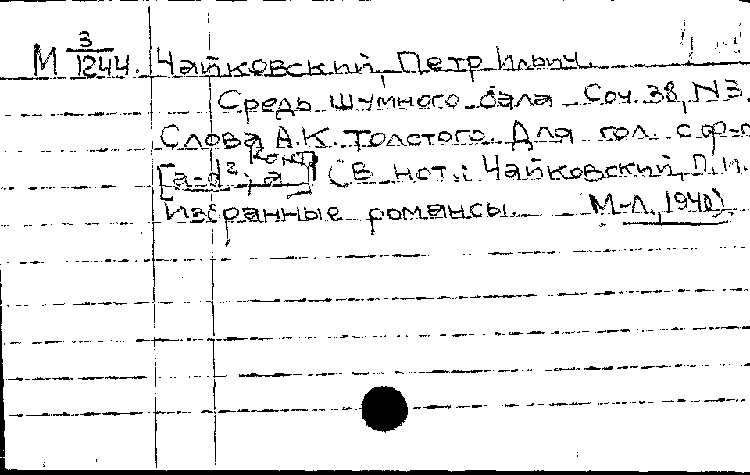 М 3/1244. Чайковский, Петр Ильич.
Средь шумного бала Соч. 38, N3.
Слова А.К. Толстого. Для гол. с ф-п
конт
[а-d²; а] (В нот.: Чайковский, П.И.
Избранные романсы. М-Л., 1940)